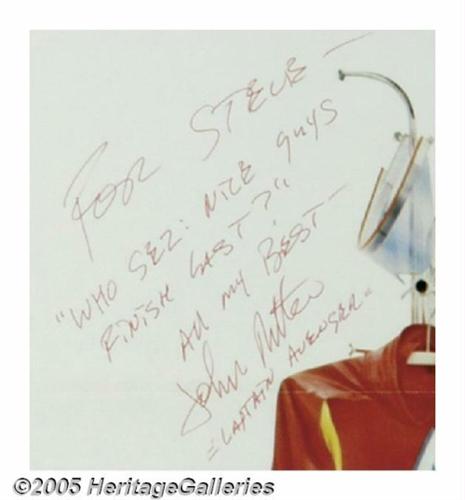 FOR STEVE—
"WHO SEZ: NICE GUYS
FINISH LAST?"
All my BEST—
John Ritter
=CAPTAIN AVENGER=
©2005 HeritageGalleries